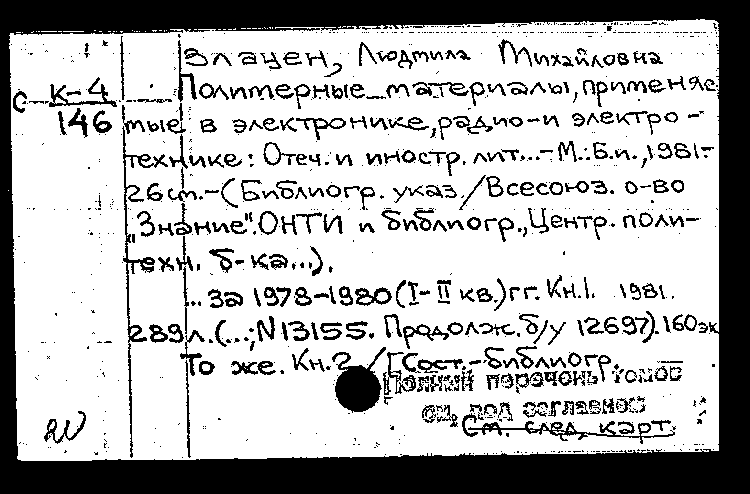 Злацен, Людмила Михайловна
С К-4
146
Полимерные материалы, применяе
мые в электронике, радио-и электро-
технике: Отеч. и иностр. лит...-М.:Б.и.,1981.-
26см.-(Библиогр. указ./Всесоюз. о-во
„Знание". ОНТИ и библиогр., Центр. поли-
техн. б-ка...).
... за 1978-1980 (I-II кв.) гг. Кн.1. 1981.
289л. (...; N13155. Продолж. б/у 12697). 160эк
То же. Кн.2 /[Сост.-библиогр.
Полный перечень томов
см. под заглавием
См. след. карт.